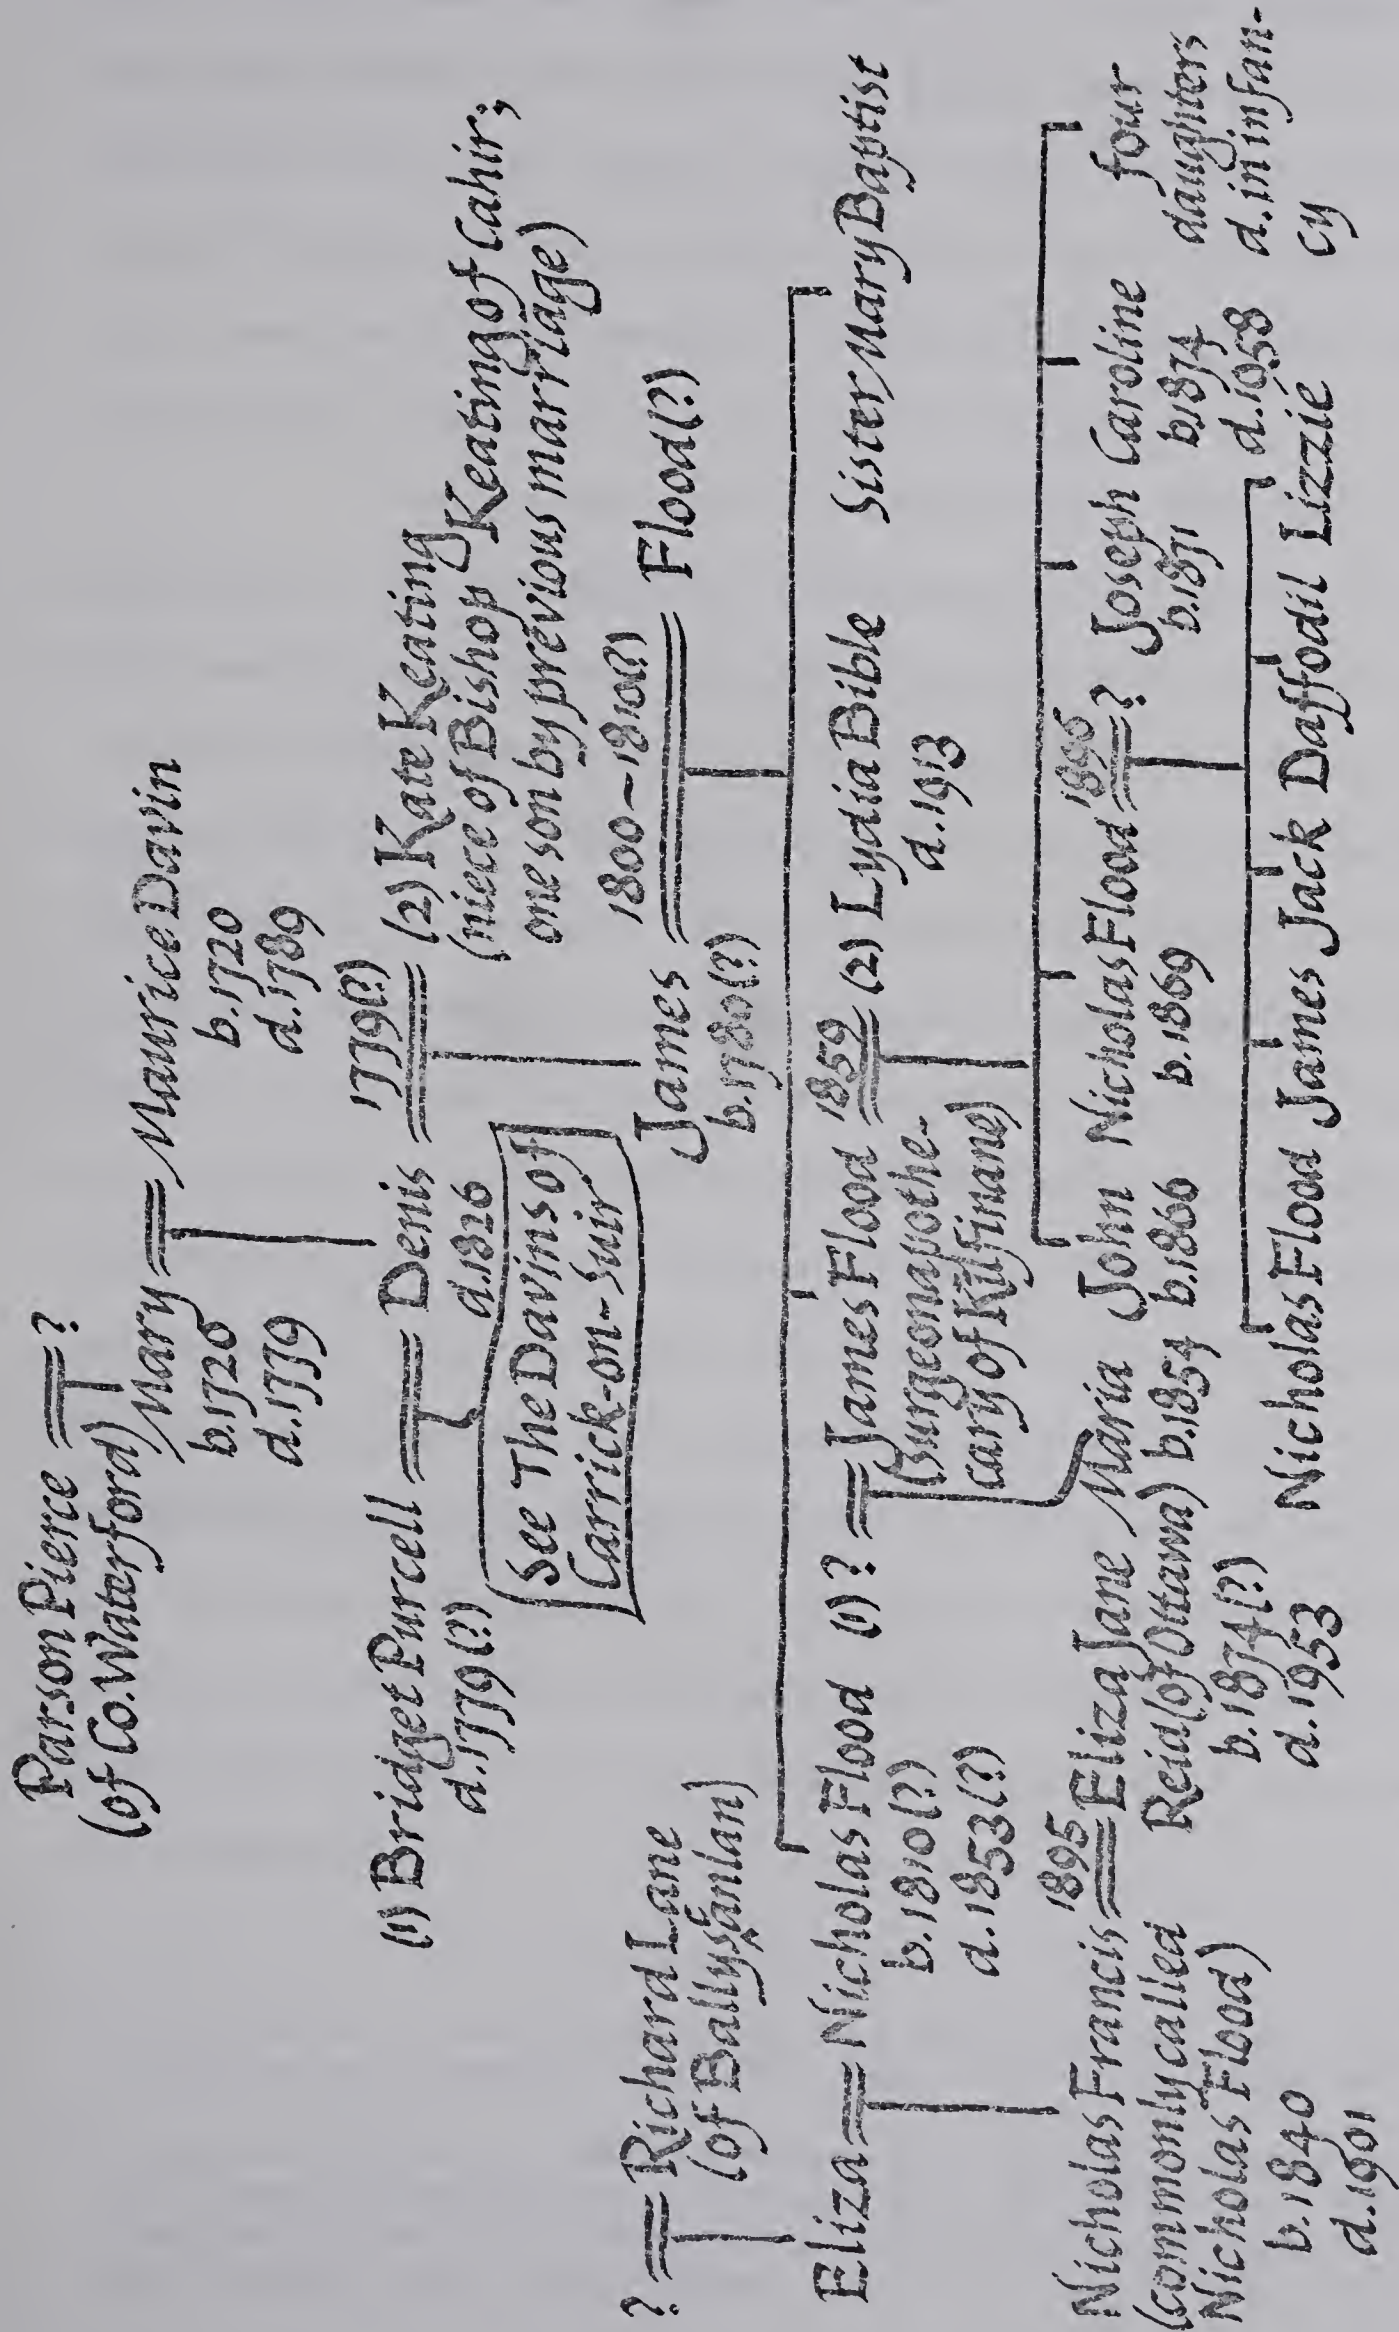 Parson Pierce ═ ?
(of Co. Waterford)
Mary ═ Maurice Davin
b. 1720
d. 1779
b. 1720
d. 1789
(1) Bridget Purcell ═ Denis ═ (2) Kate Keating
1779(?)
d. 1779(?)
d. 1826
(niece of Bishop Keating of Cahir;
one son by previous marriage)
See The Davins of
Carrick-on-Suir
1800–1810(?)
James ═ Flood(?)
b. 1780(?)
? ═ Richard Lane
(of Ballysanlan)
Eliza ═ Nicholas Flood
b. 1810(?)
d. 1853(?)
(1) ? ═ James Flood ═ (2) Lydia Bible
1859
(surgeon apothe-
cary of Kilfinane)
d. 1913
Sister Mary Baptist
Nicholas Francis ═ Eliza Jane
1895
(commonly called
Nicholas Flood)
b. 1840
d. 1901
Reid (of Ottawa)
b. 1874(?)
d. 1953
Maria
b. 1854
John
b. 1866
Nicholas Flood ═ ?
b. 1869
Joseph
b. 1871
Caroline
b. 1874
d. 1958
four
daughters
d. in infan-
cy
Nicholas Flood James Jack Daffodil Lizzie